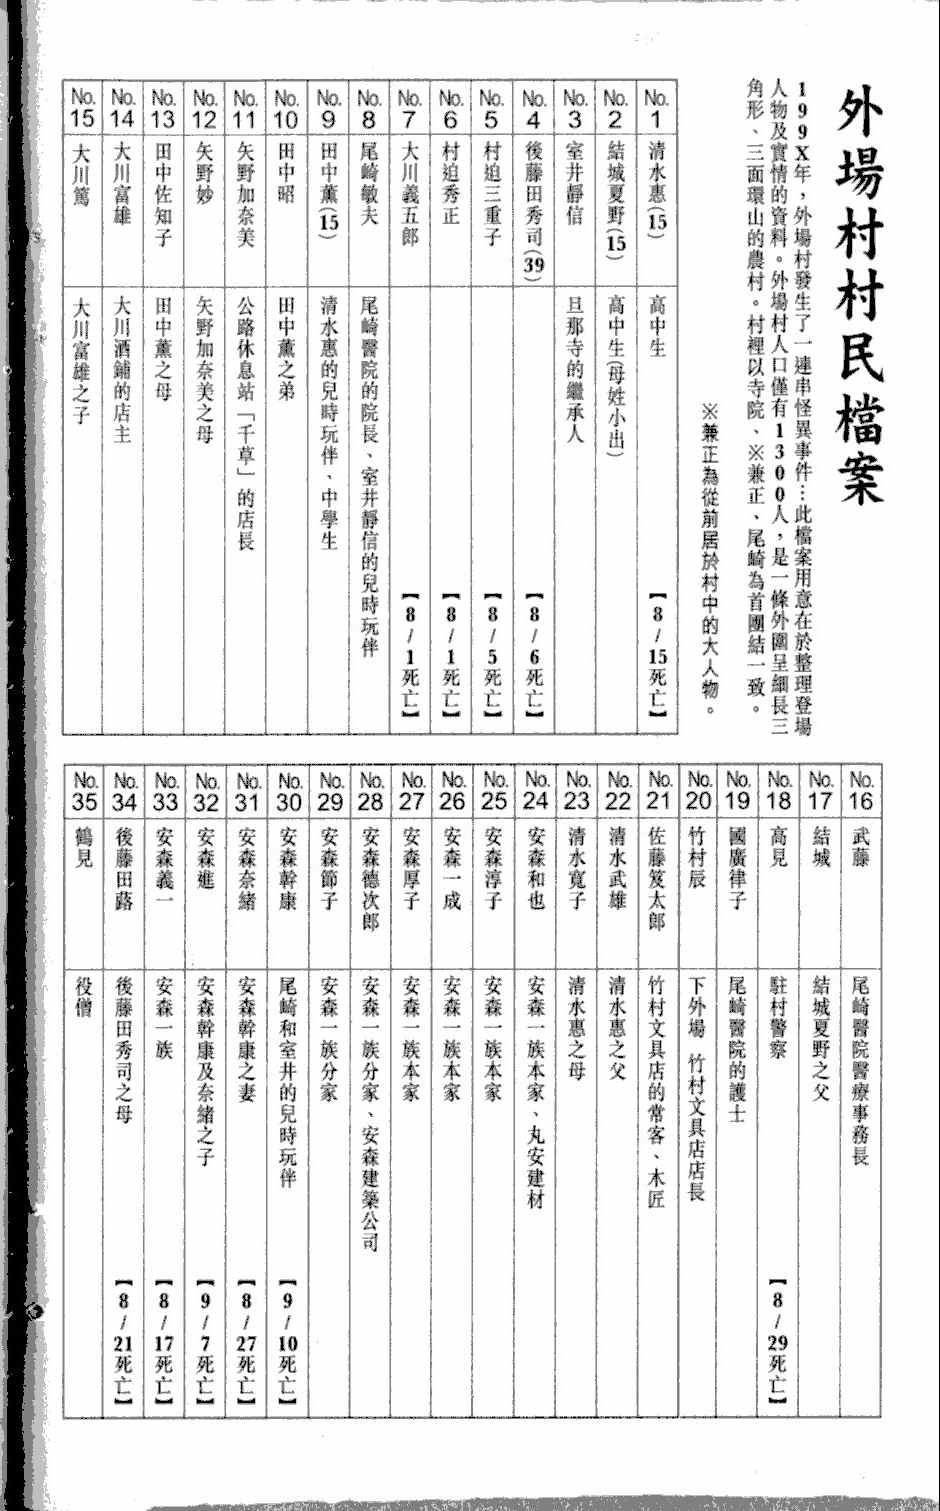 外場村村民檔案
199X年，外場村發生了一連串怪異事件…此檔案用意在於整理登場
人物及實情的資料。外場村人口僅有1300人，是一條外圍呈細長三
角形、三面環山的農村。村裡以寺院、※兼正、尾崎為首團結一致。
※兼正為從前居於村中的大人物。
No.1 清水惠(15) 高中生 【8/15死亡】
No.2 結城夏野(15) 高中生(母姓小出)
No.3 室井靜信 旦那寺的繼承人
No.4 後藤田秀司(39) 【8/6死亡】
No.5 村迫三重子 【8/5死亡】
No.6 村迫秀正 【8/1死亡】
No.7 大川義五郎 【8/1死亡】
No.8 尾崎敏夫 尾崎醫院的院長、室井靜信的兒時玩伴
No.9 田中薰(15) 清水惠的兒時玩伴、中學生
No.10 田中昭 田中薰之弟
No.11 矢野加奈美 公路休息站「千草」的店長
No.12 矢野妙 矢野加奈美之母
No.13 田中佐知子 田中薰之母
No.14 大川富雄 大川酒鋪的店主
No.15 大川篤 大川富雄之子
No.16 武藤 尾崎醫院醫療事務長
No.17 結城 結城夏野之父
No.18 高見 駐村警察 【8/29死亡】
No.19 國廣律子 尾崎醫院的護士
No.20 竹村辰 下外場 竹村文具店店長
No.21 佐藤笈太郎 竹村文具店的常客、木匠
No.22 清水武雄 清水惠之父
No.23 清水寬子 清水惠之母
No.24 安森和也 安森一族本家、丸安建材
No.25 安森淳子 安森一族本家
No.26 安森一成 安森一族本家
No.27 安森厚子 安森一族本家
No.28 安森德次郎 安森一族分家、安森建築公司
No.29 安森節子 安森一族分家
No.30 安森幹康 尾崎和室井的兒時玩伴 【9/10死亡】
No.31 安森奈緒 安森幹康之妻 【8/27死亡】
No.32 安森進 安森幹康及奈緒之子 【9/7死亡】
No.33 安森義一 安森一族 【8/17死亡】
No.34 後藤田蕗 後藤田秀司之母 【8/21死亡】
No.35 鶴見 役僧